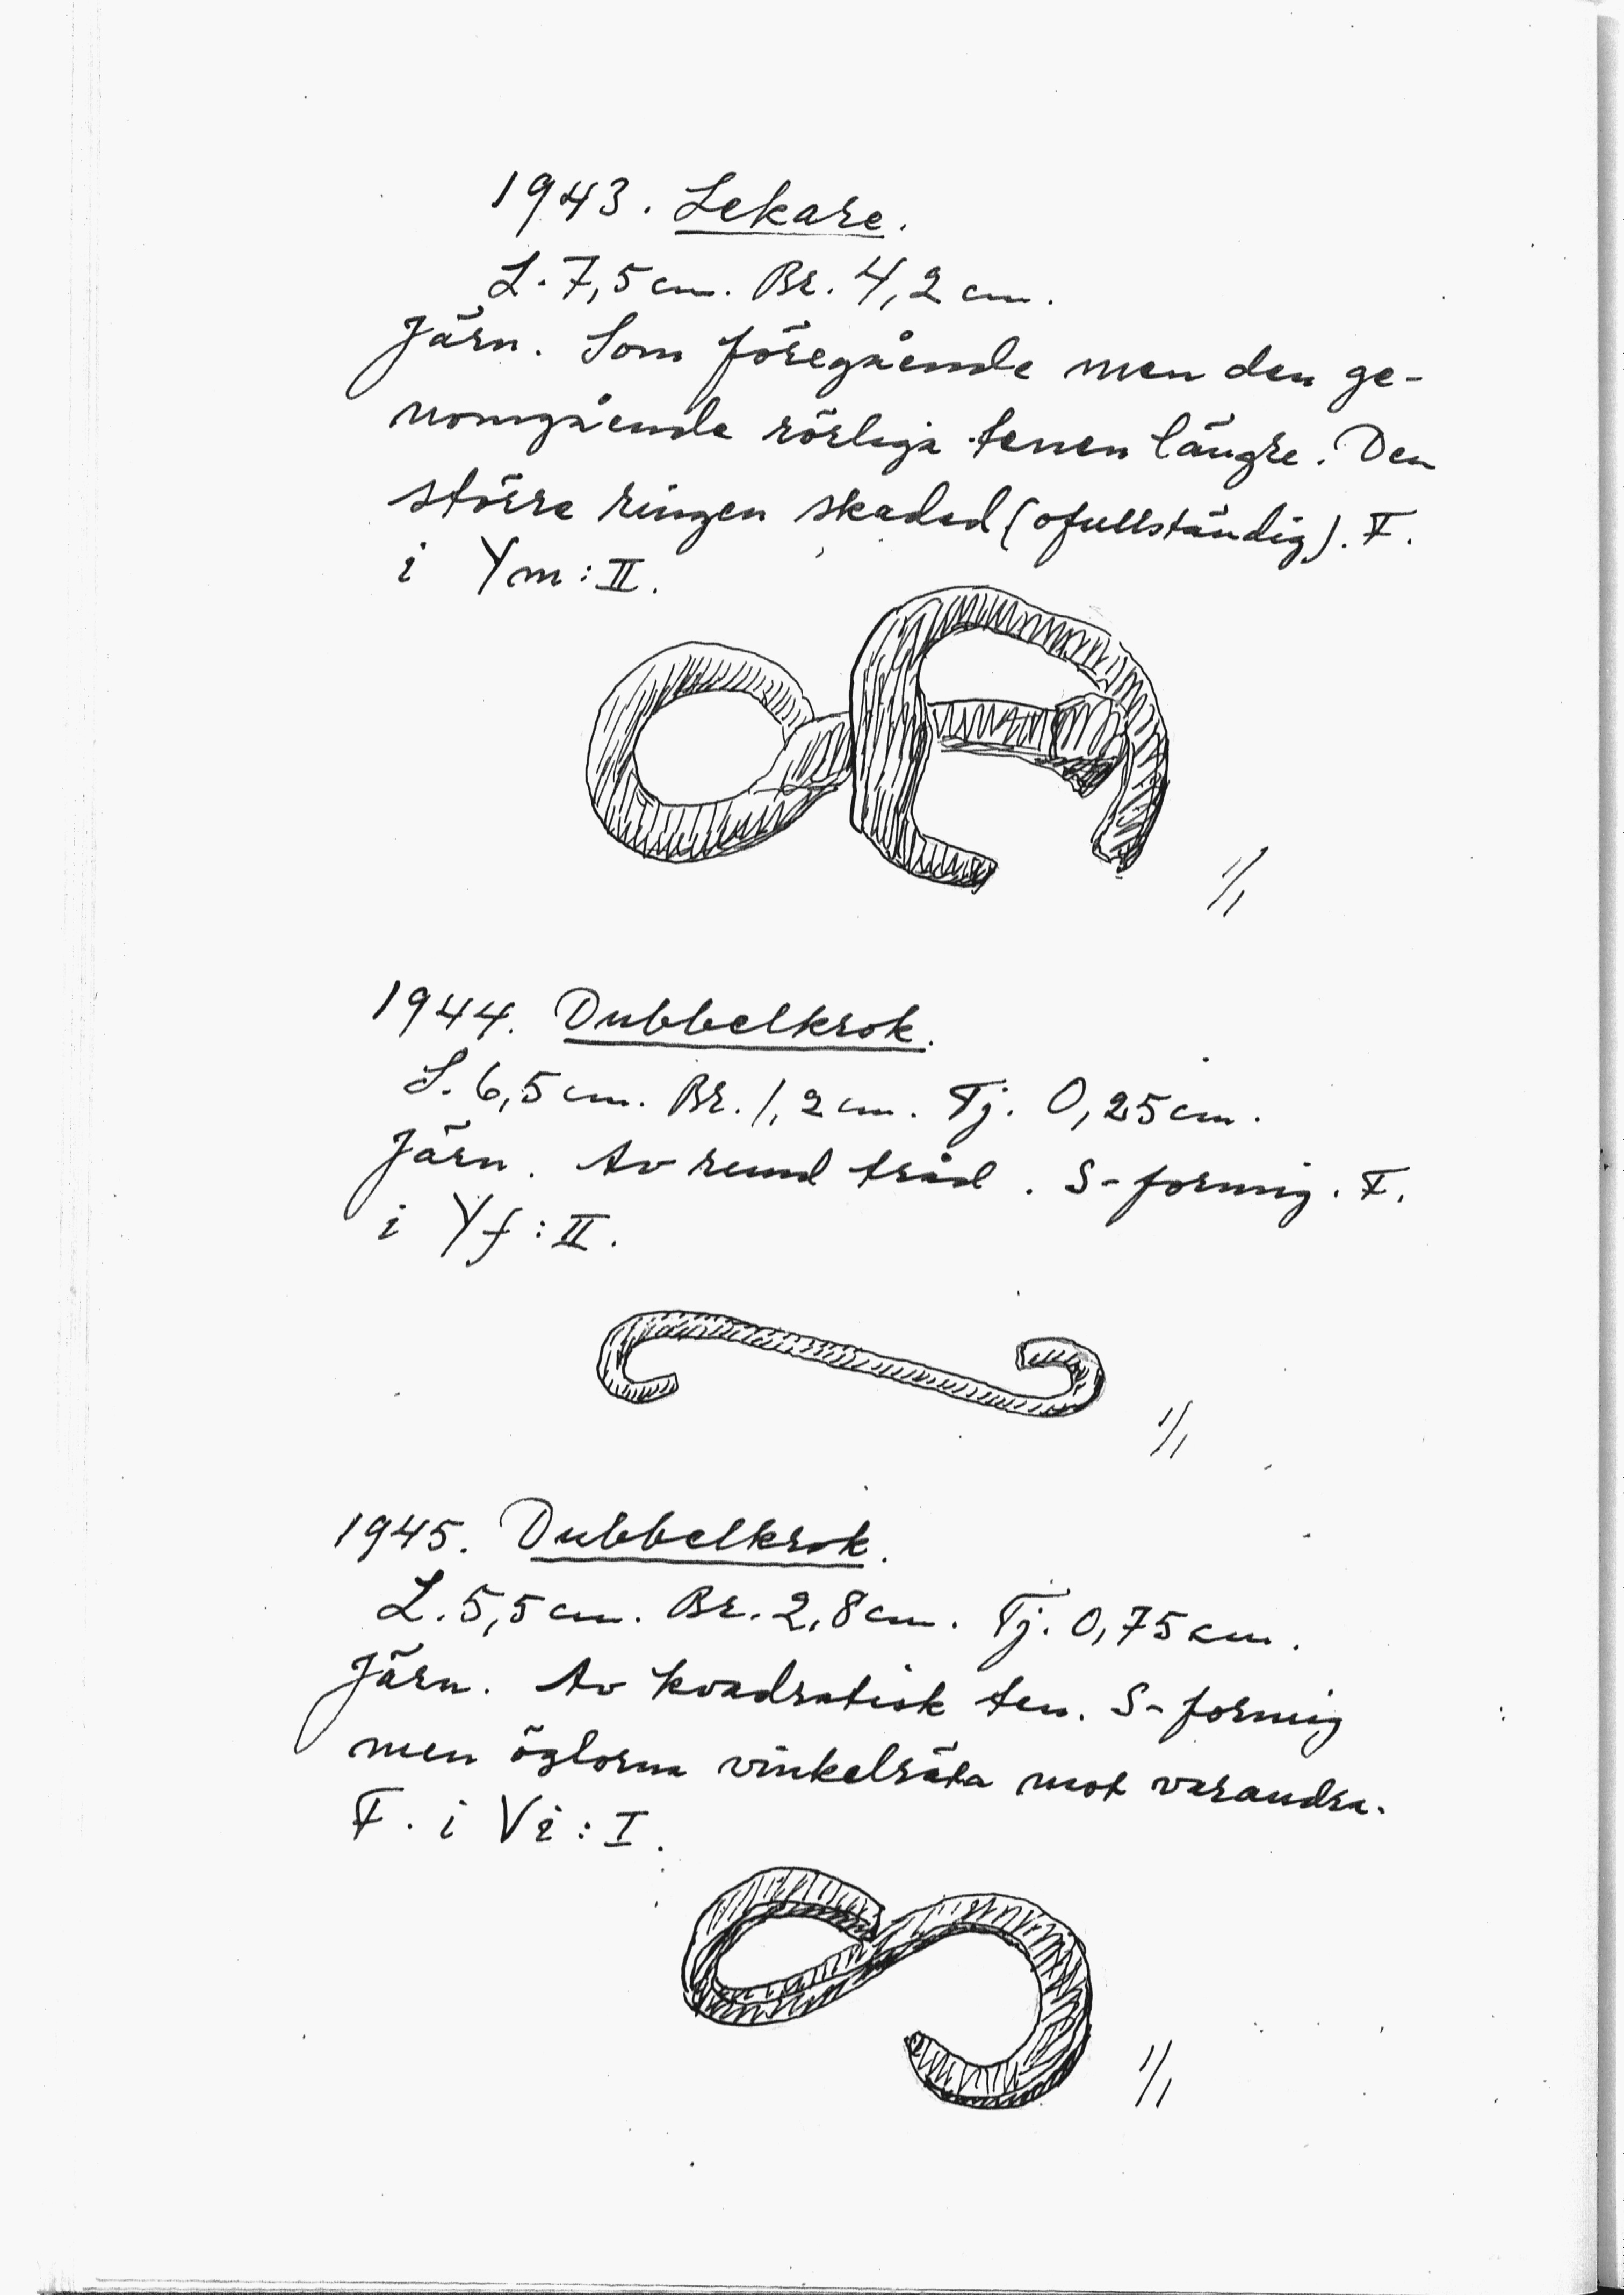 1943. Lekare.
L. 7,5 cm. Br. 4,2 cm.
Järn. Som föregående men den ge-
nomgående rörliga tenen längre. Den
större ringen skadad (ofullständig). F.
i Ym:II.
1/1
1944. Dubbelkrok.
L. 6,5 cm. Br. 1,2 cm. Tj. 0,25 cm.
Järn. Av rund tråd. S-formig. F.
i Yf:II.
1/1
1945. Dubbelkrok.
L. 5,5 cm. Br. 2,8 cm. Tj. 0,75 cm.
Järn. Av kvadratisk ten. S-formig
men öglorna vinkelräta mot varandra.
F. i Vi:I.
1/1